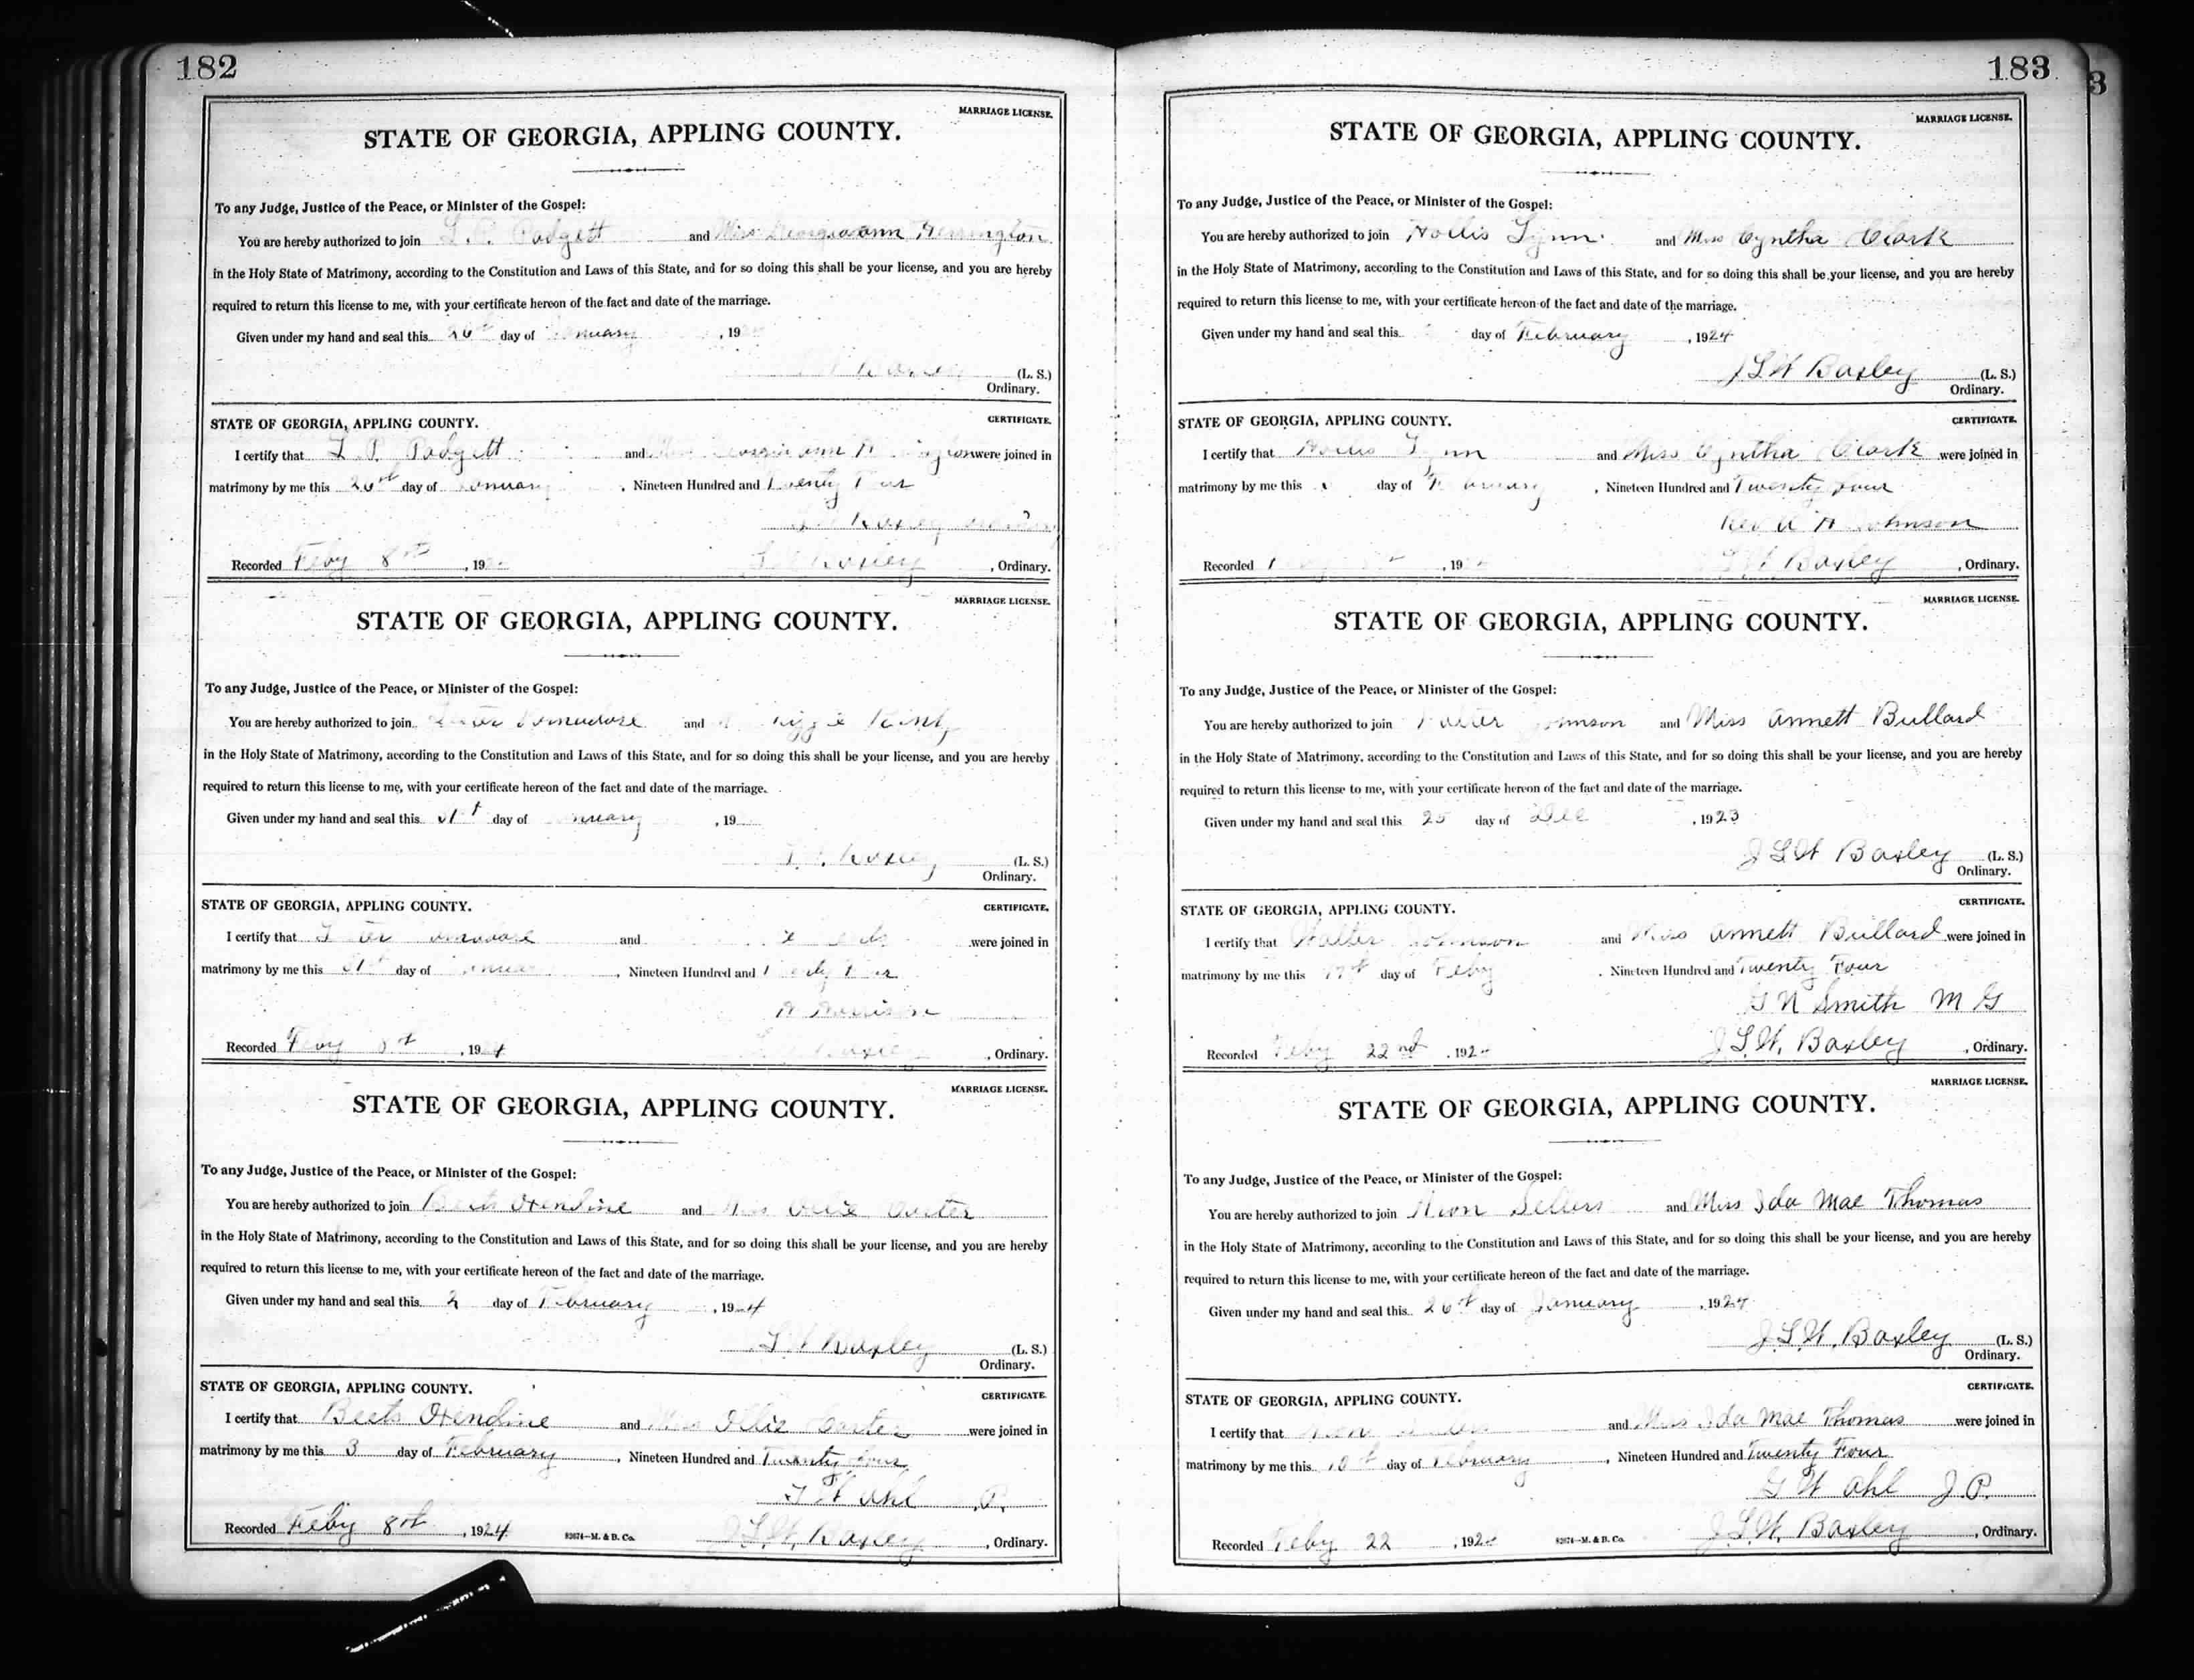 182
MARRIAGE LICENSE.
STATE OF GEORGIA, APPLING COUNTY.
To any Judge, Justice of the Peace, or Minister of the Gospel:
You are hereby authorized to join L. P. Padgett and Miss Georgiaann Herrington
in the Holy State of Matrimony, according to the Constitution and Laws of this State, and for so doing this shall be your license, and you are hereby
required to return this license to me, with your certificate hereon of the fact and date of the marriage.
Given under my hand and seal this 26th day of January, 19
(L. S.)
Ordinary.
STATE OF GEORGIA, APPLING COUNTY. CERTIFICATE.
I certify that L P Padgett and were joined in
matrimony by me this 26th day of January, Nineteen Hundred and Twenty Four
Baxley
Recorded Feby 8th, 19 Baxley, Ordinary.
MARRIAGE LICENSE.
STATE OF GEORGIA, APPLING COUNTY.
To any Judge, Justice of the Peace, or Minister of the Gospel:
You are hereby authorized to join and
in the Holy State of Matrimony, according to the Constitution and Laws of this State, and for so doing this shall be your license, and you are hereby
required to return this license to me, with your certificate hereon of the fact and date of the marriage.
Given under my hand and seal this 31st day of January, 19
Baxley (L. S.)
Ordinary.
STATE OF GEORGIA, APPLING COUNTY. CERTIFICATE.
I certify that and were joined in
matrimony by me this 31st day of January, Nineteen Hundred and Twenty Four
Recorded Feby 8th, 19 4 Baxley, Ordinary.
MARRIAGE LICENSE.
STATE OF GEORGIA, APPLING COUNTY.
To any Judge, Justice of the Peace, or Minister of the Gospel:
You are hereby authorized to join Beets Oxendine and Miss Ollie Carter
in the Holy State of Matrimony, according to the Constitution and Laws of this State, and for so doing this shall be your license, and you are hereby
required to return this license to me, with your certificate hereon of the fact and date of the marriage.
Given under my hand and seal this 2 day of February, 1924
L W Baxley (L. S.)
Ordinary.
STATE OF GEORGIA, APPLING COUNTY. CERTIFICATE.
I certify that Beets Oxendine and Miss Ollie Carter were joined in
matrimony by me this 3 day of February, Nineteen Hundred and Twenty Four
G W Ahl J.P.
Recorded Feby 8th, 1924 82674—M. & B. Co. J. L. W. Baxley, Ordinary.
183
MARRIAGE LICENSE.
STATE OF GEORGIA, APPLING COUNTY.
To any Judge, Justice of the Peace, or Minister of the Gospel:
You are hereby authorized to join Hollis Lynn and Miss Cyntha Clark
in the Holy State of Matrimony, according to the Constitution and Laws of this State, and for so doing this shall be your license, and you are hereby
required to return this license to me, with your certificate hereon of the fact and date of the marriage.
Given under my hand and seal this day of February, 1924
J L W Baxley (L. S.)
Ordinary.
STATE OF GEORGIA, APPLING COUNTY. CERTIFICATE.
I certify that Hollis Lynn and Miss Cyntha Clark were joined in
matrimony by me this day of February, Nineteen Hundred and Twenty four
Rev Johnson
Recorded, 19 L W Baxley, Ordinary.
MARRIAGE LICENSE.
STATE OF GEORGIA, APPLING COUNTY.
To any Judge, Justice of the Peace, or Minister of the Gospel:
You are hereby authorized to join Walter Johnson and Miss Annett Bullard
in the Holy State of Matrimony, according to the Constitution and Laws of this State, and for so doing this shall be your license, and you are hereby
required to return this license to me, with your certificate hereon of the fact and date of the marriage.
Given under my hand and seal this 25 day of Dec, 1923
J L W Baxley (L. S.)
Ordinary.
STATE OF GEORGIA, APPLING COUNTY. CERTIFICATE.
I certify that Walter Johnson and Miss Annett Bullard were joined in
matrimony by me this day of Feby, Nineteen Hundred and Twenty Four
G N Smith M G
Recorded Feby 22nd, 192 J L W. Baxley, Ordinary.
MARRIAGE LICENSE.
STATE OF GEORGIA, APPLING COUNTY.
To any Judge, Justice of the Peace, or Minister of the Gospel:
You are hereby authorized to join Sellers and Miss Ida Mae Thomas
in the Holy State of Matrimony, according to the Constitution and Laws of this State, and for so doing this shall be your license, and you are hereby
required to return this license to me, with your certificate hereon of the fact and date of the marriage.
Given under my hand and seal this 26th day of January, 1924
J. L. W. Baxley (L. S.)
Ordinary.
STATE OF GEORGIA, APPLING COUNTY. CERTIFICATE.
I certify that and Miss Ida Mae Thomas were joined in
matrimony by me this 10th day of February, Nineteen Hundred and Twenty Four
G W Ahl J.P.
Recorded Feby 22, 192 82674—M. & B. Co. J. L. W. Baxley, Ordinary.
3